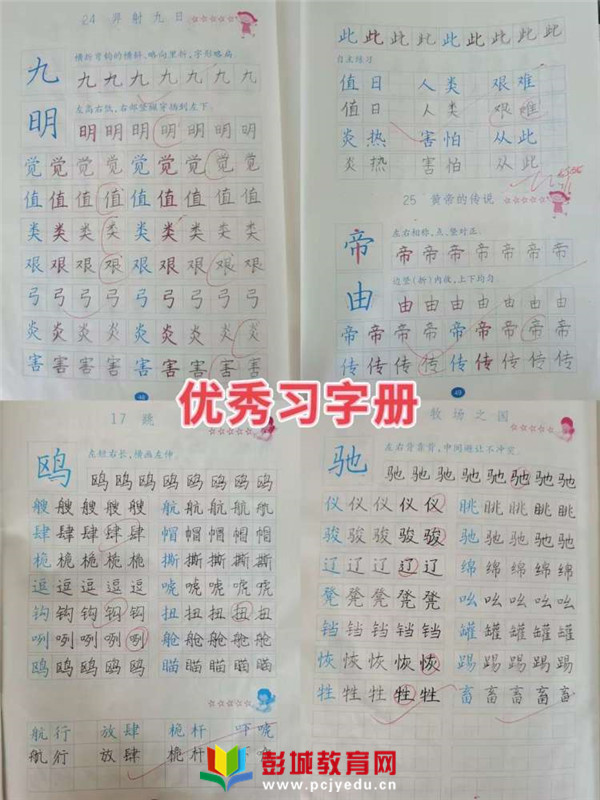 24 羿射九日
九
横折弯钩的横斜,略向里折,字形略扁
九九九九九九九
明
左高右低,右部竖脚穿插到左下.
明明明明明明明
觉觉觉觉觉觉觉觉觉
值值值值值值值值值
类类类类类类类类类
艰艰艰艰艰艰艰艰艰
弓弓弓弓弓弓弓弓弓
炎炎炎炎炎炎炎炎炎
害害害害害害害害害
48
此此此此此此此此此
自主练习
值日 人类 艰难
值日 人类 艰难
炎热 害怕 从此
炎热 害怕 从此
25 黄帝的传说
帝
左右相称,点、竖对正.
帝帝帝帝帝帝帝
由
边竖(折)内收,上下均匀.
由由由由由由由
帝帝帝帝帝帝帝帝帝
传传传传传传传传传
49
优秀习字册
17 跳
鸥
左短右长,横画左伸.
鸥鸥鸥鸥鸥鸥鸥鸥
艘艘艘艘艘 航航航航航
肆肆肆肆肆 帽帽帽帽帽
桅桅桅桅桅 撕撕撕撕撕
逗逗逗逗逗 唬唬唬唬唬
钩钩钩钩钩 扭扭扭扭扭
咧咧咧咧咧 舱舱舱舱舱
鸥鸥鸥鸥鸥 瞄瞄瞄瞄瞄
航行 放肆 桅杆 吓唬
航行 放肆 桅杆
牧场之国
驰
左右背靠背,中间避让不冲突.
驰驰驰驰驰驰驰驰
仪仪仪仪仪 眺眺眺眺眺
骏骏骏骏骏 驰驰驰驰驰
辽辽辽辽辽 绵绵绵绵绵
凳凳凳凳凳 吆吆吆吆吆
铛铛铛铛铛 罐罐罐罐罐
恢恢恢恢恢 踢踢踢踢踢
牲牲牲牲牲 畜畜畜畜畜
彭城教育网
www.pcjyedu.cn